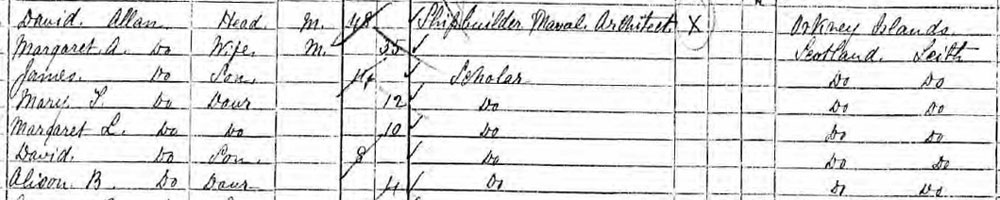 David Allan Head M. 48 Shipbuilder & Naval Architect X Orkney Islands.
Margaret A. Do Wife M. 35 Scotland. Leith
James. Do Son. 14 Scholar Do Do
Mary F. Do Daur 12 Do Do Do
Margaret L. Do Do 10 Do Do Do
David. Do Son. 8 Do Do Do
Alison B. Do Daur 4 Do Do Do